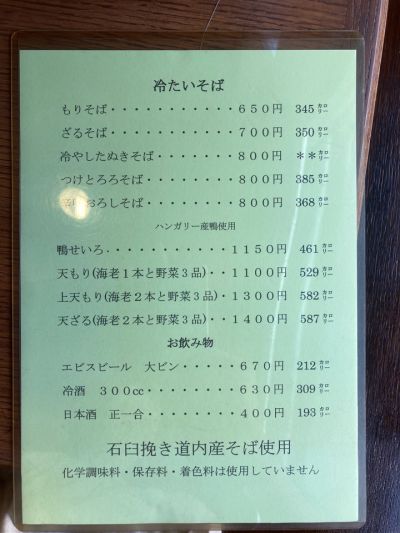 冷たいそば
もりそば・・・・・・・・・・・６５０円 345 カロリー
ざるそば・・・・・・・・・・・７００円 350 カロリー
冷やしたぬきそば・・・・・・・８００円 ＊＊ カロリー
つけとろろそば・・・・・・・・８００円 385 カロリー
おろしそば・・・・・・・・８００円 368 カロリー
ハンガリー産鴨使用
鴨せいろ・・・・・・・・・・・１１５０円 461 カロリー
天もり(海老１本と野菜３品)・・１１００円 529 カロリー
上天もり(海老２本と野菜３品)・１３００円 582 カロリー
天ざる(海老２本と野菜３品)・・１４００円 587 カロリー
お飲み物
エビスビール 大ビン・・・・・６７０円 212 カロリー
冷酒 ３００cc・・・・・・・・６３０円 309 カロリー
日本酒 正一合・・・・・・・・４００円 193 カロリー
石臼挽き道内産そば使用
化学調味料・保存料・着色料は使用していません